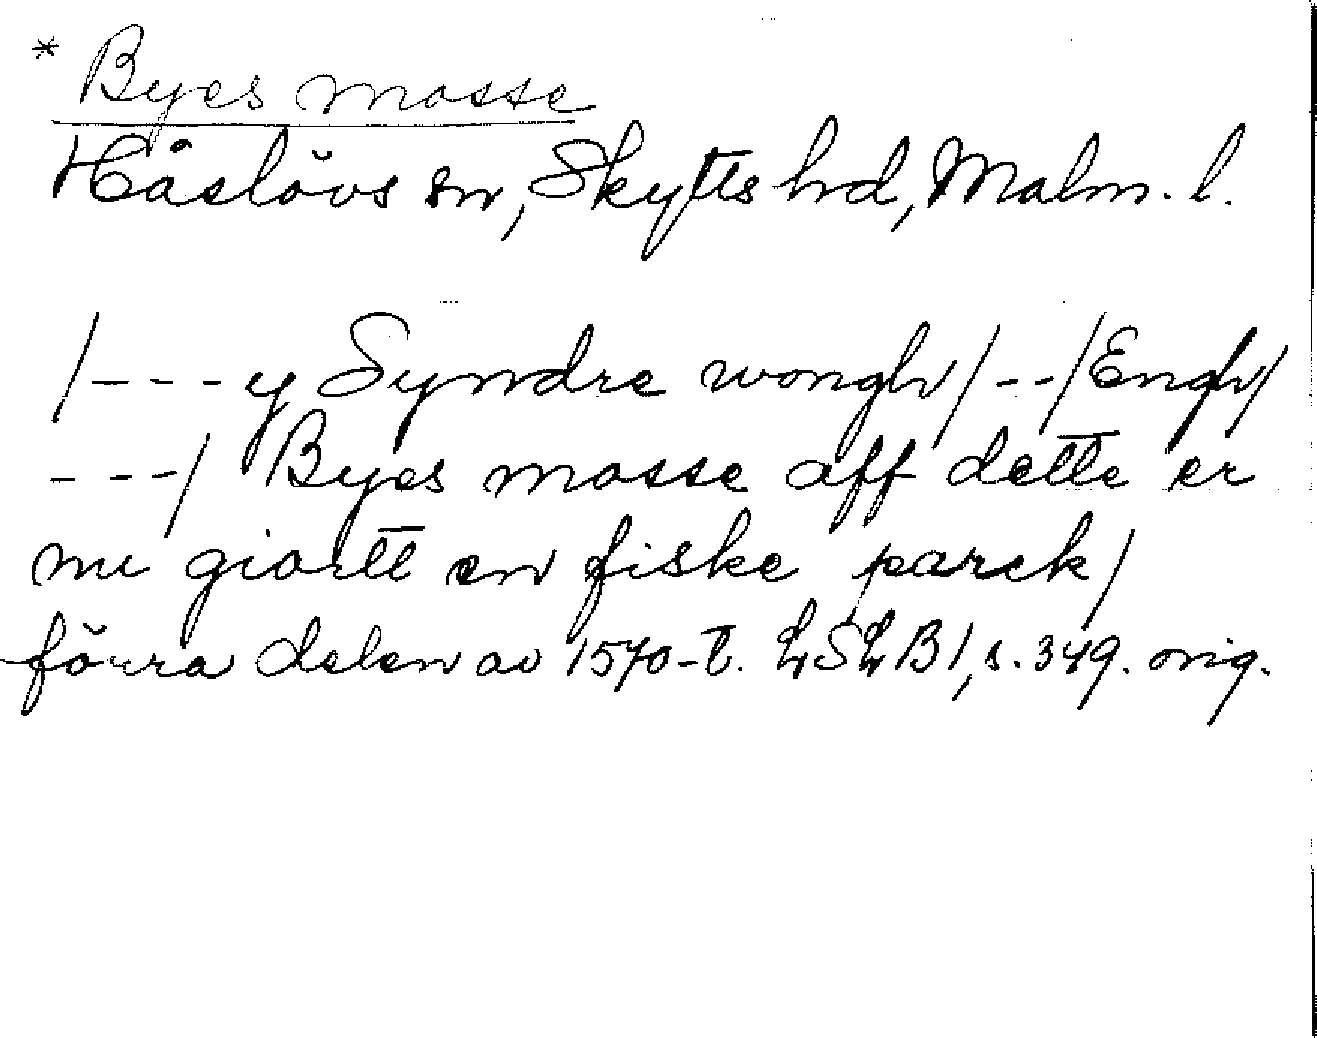 * Byes mosse
Håslövs sn, Skytts hd, Malm. l.
/---y Syndre wongh/--/Engh/
---/ Byes mosse aff dette er
nu giortt en fiske parck/
förra delen av 1570-t. LSLB1, s. 349. orig.